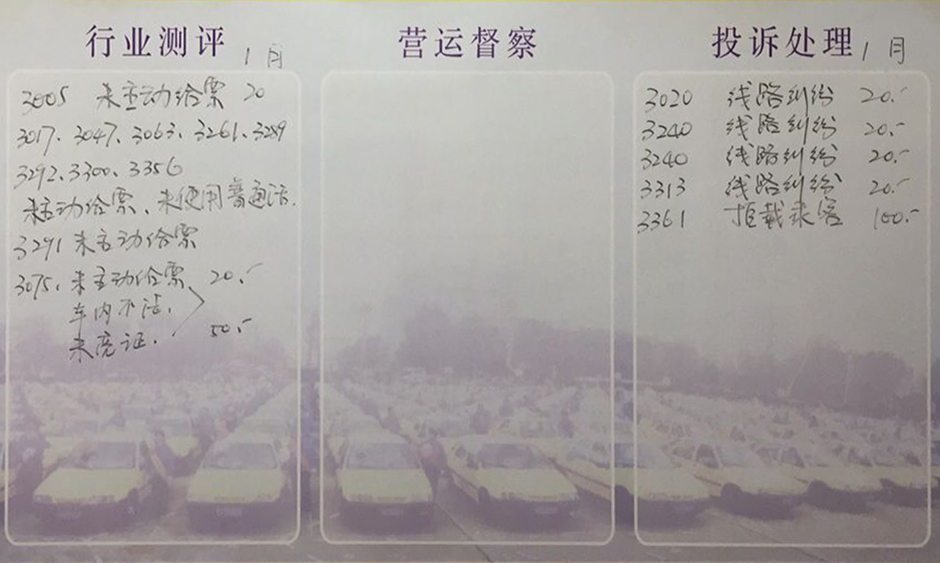 行业测评 1月
3005 未主动给票 20
3017、3047、3063、3261、3289
3292、3300、3356
未主动给票、未使用普通话.
3291 未主动给票
3075、未主动给票 20.-
车内不洁,
未亮证. 50.-
营运督察
投诉处理 1月
3020 线路纠纷 20.-
3240 线路纠纷 20.-
3240 线路纠纷 20.-
3313 线路纠纷 20.-
3361 拒载乘客 100.-